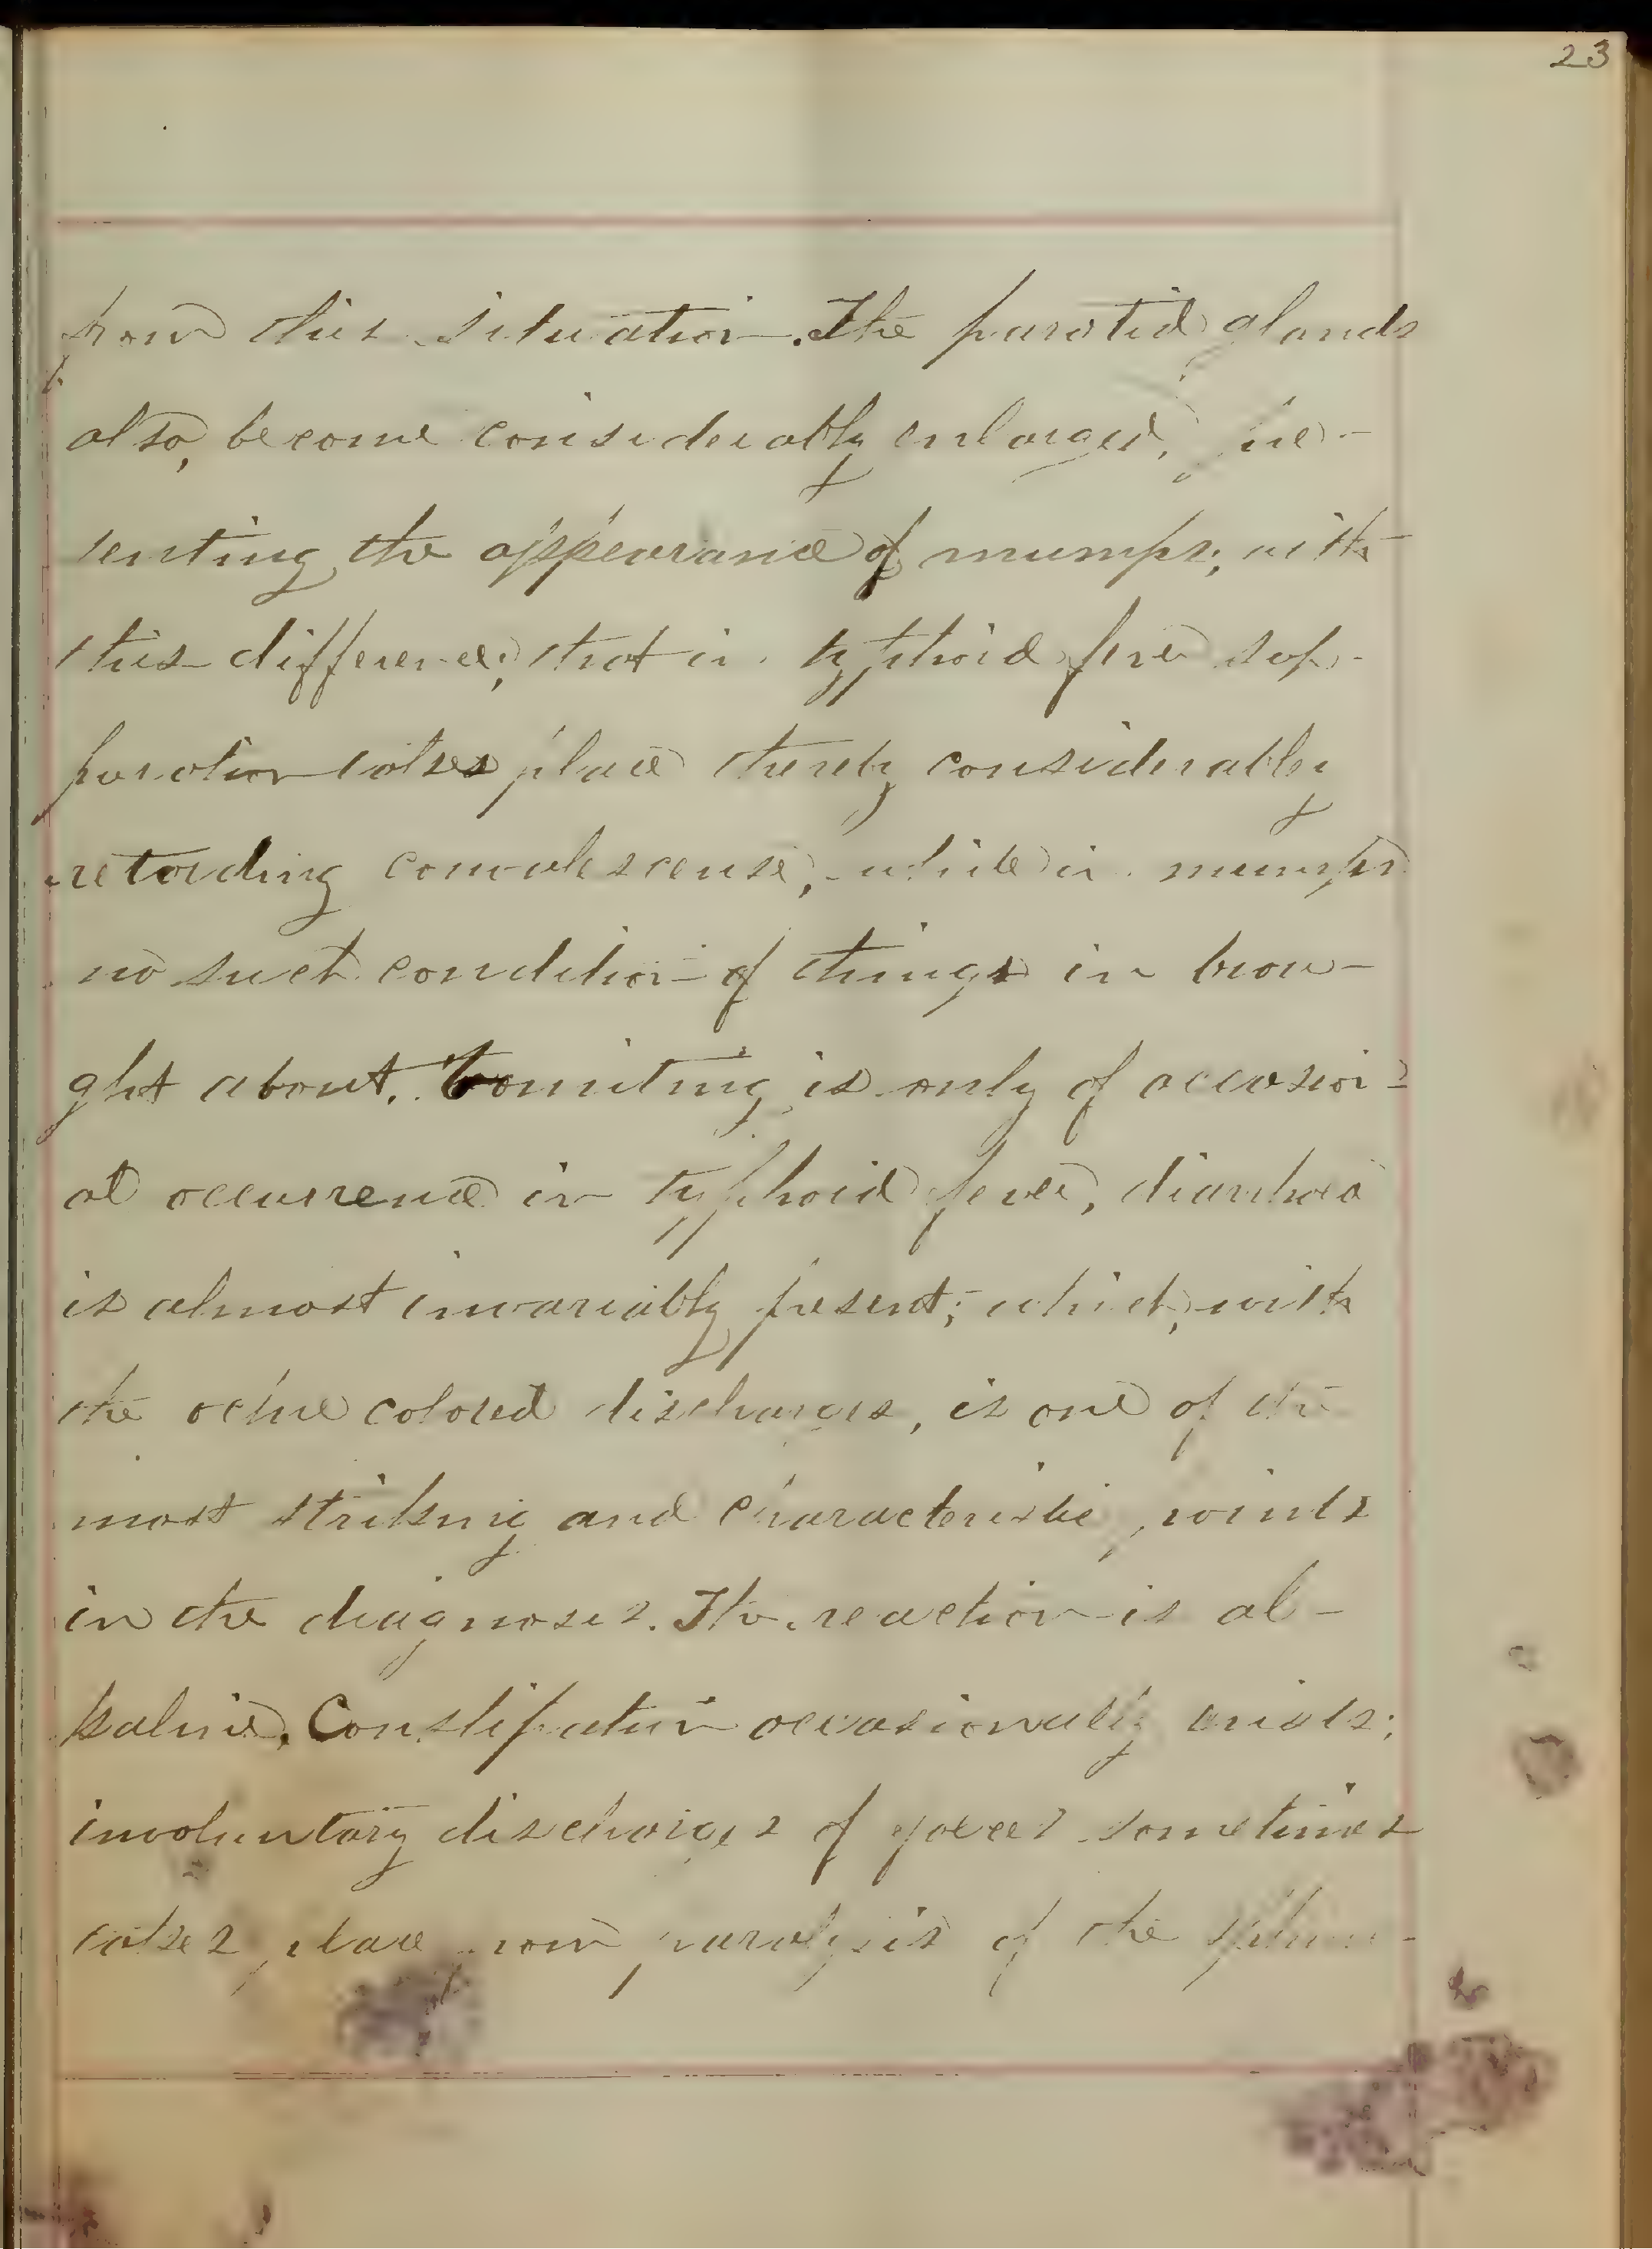 23
from this situation. The parotid glands
also, become considerably enlarged, pre-
senting the appearance of mumps; with
this difference; that in typhoid fever sup-
puration takes place thereby considerably
retarding convalescense, while in mumps
no such condition of things in brou-
ght about. Vomiting is only of occasion-
al occurrence in typhoid fever, diarrhoea
is almost invariably present; which, with
the ochre colored discharges, is one of the
most striking and characteristic points
in the diagnosis. The reaction is al-
kaline. Constipation occasionally exists;
involuntary discharges of foeces sometimes
takes place from paralysis of the sphinc-